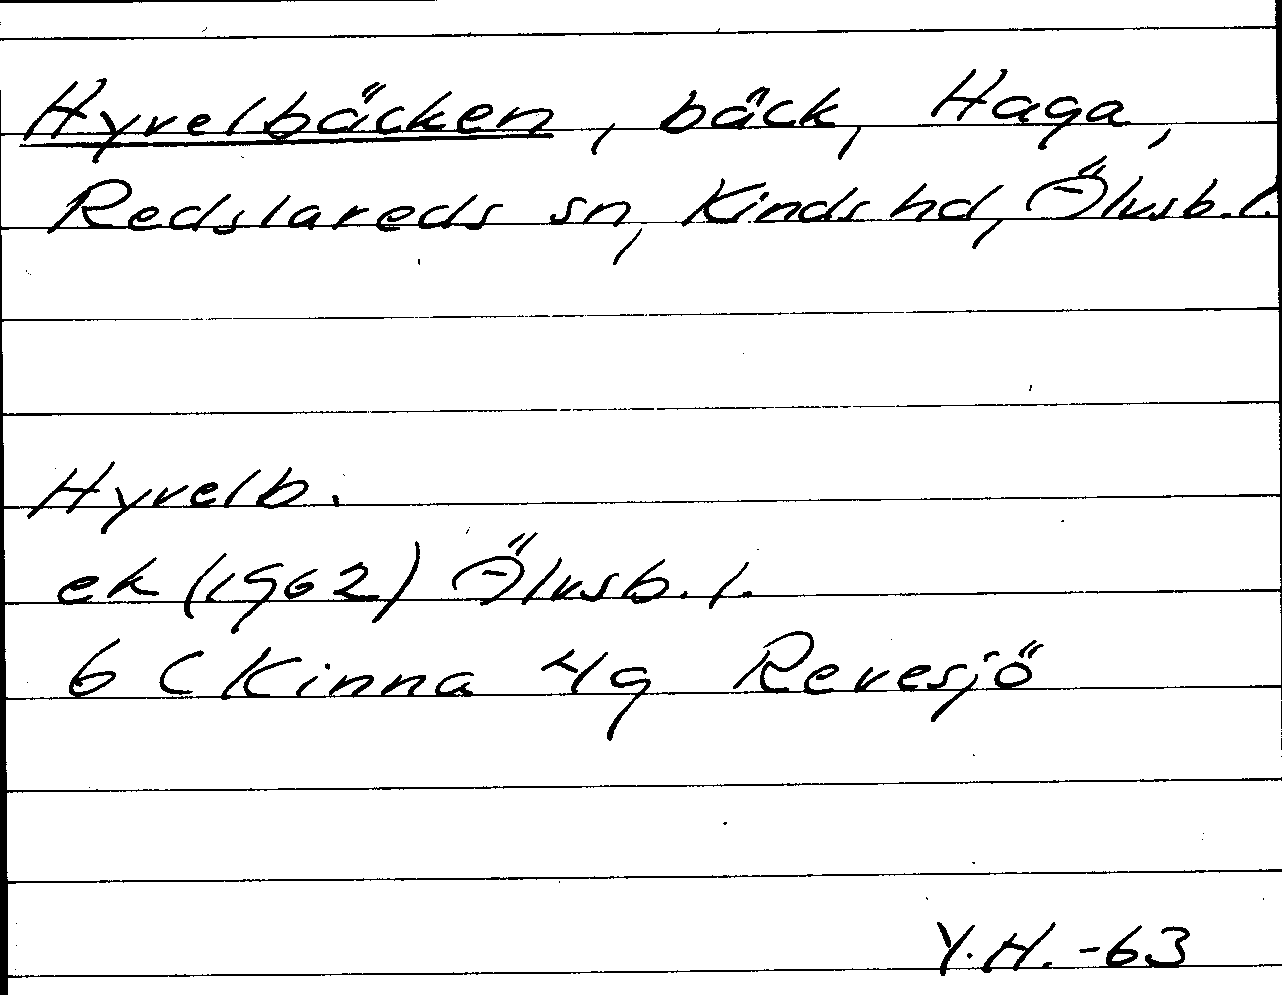 Hyvelbäcken, bäck, Haga,
Redslareds sn, Kinds hd, Älvsb. l.
Hyvelb.
ek (1962) Älvsb. l.
6 C Kinna 4g Revesjö
Y.H. -63